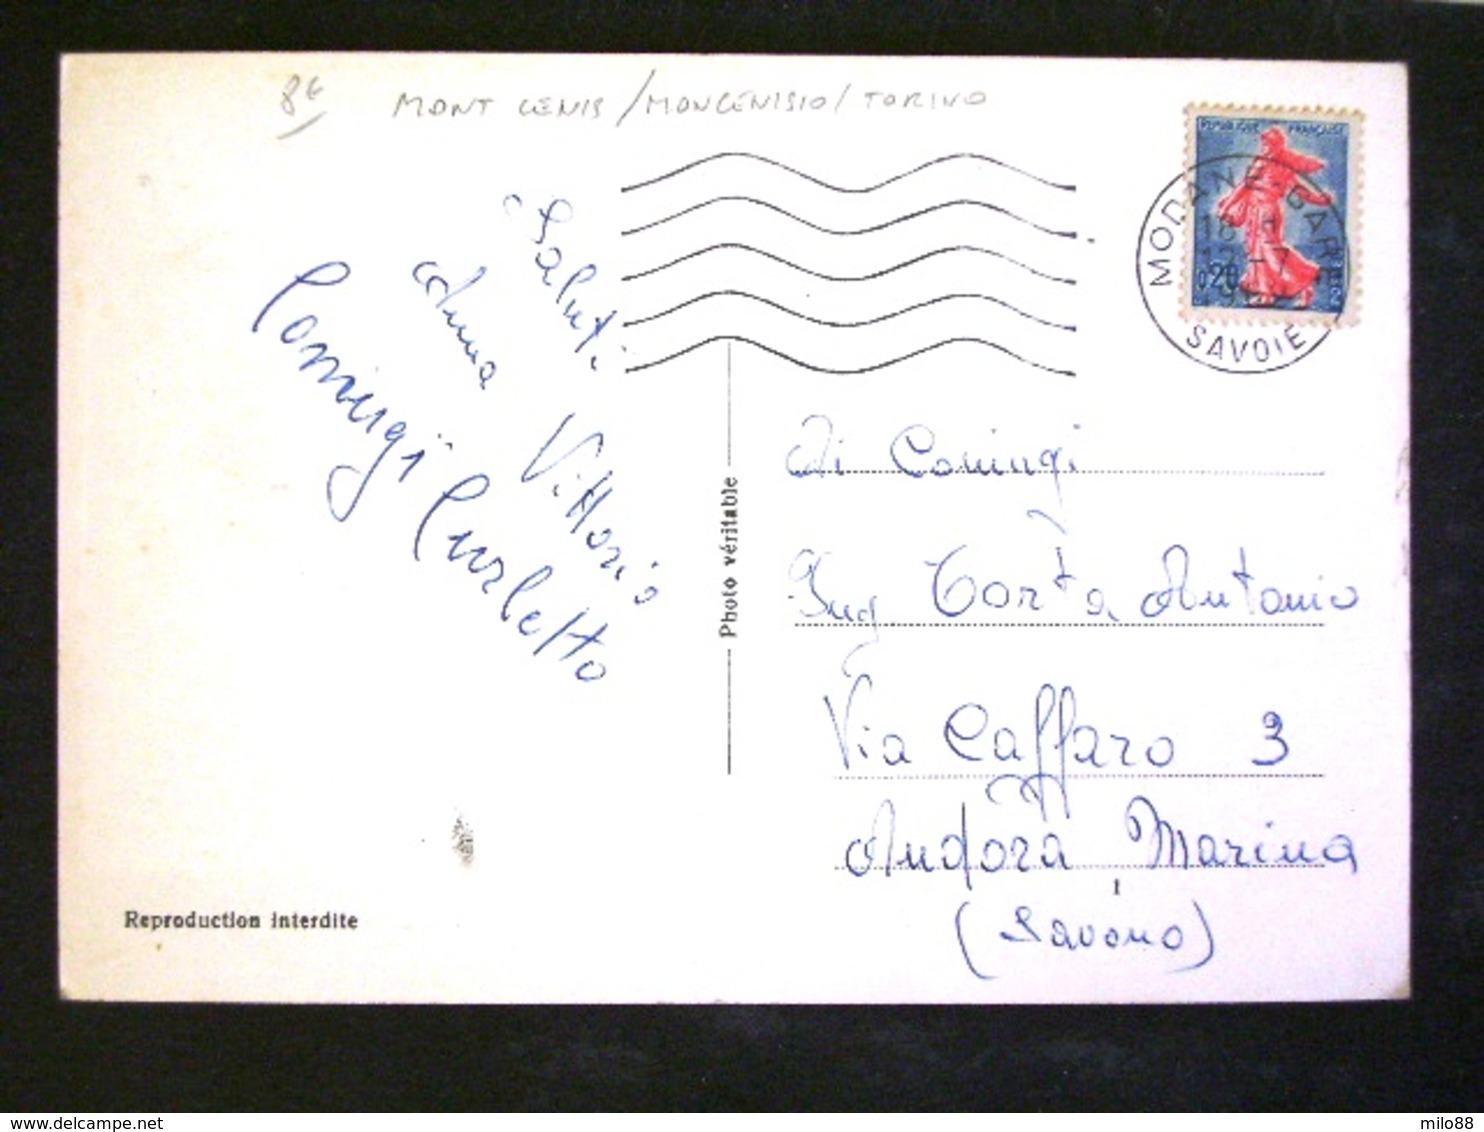 8€
MONT CENIS / MONCENISIO / TORINO
REPUBLIQUE FRANÇAISE
0,20
MODANE-GARE
18 H
12-7
SAVOIE
Saluti
Anna Vittorio
Coningi Curletto
Photo véritable
Di Coningi
Ing. Torta Antonio
Via Caffaro 3
Andora Marina
(Savona)
Reproduction interdite
delcampe.net
milo88